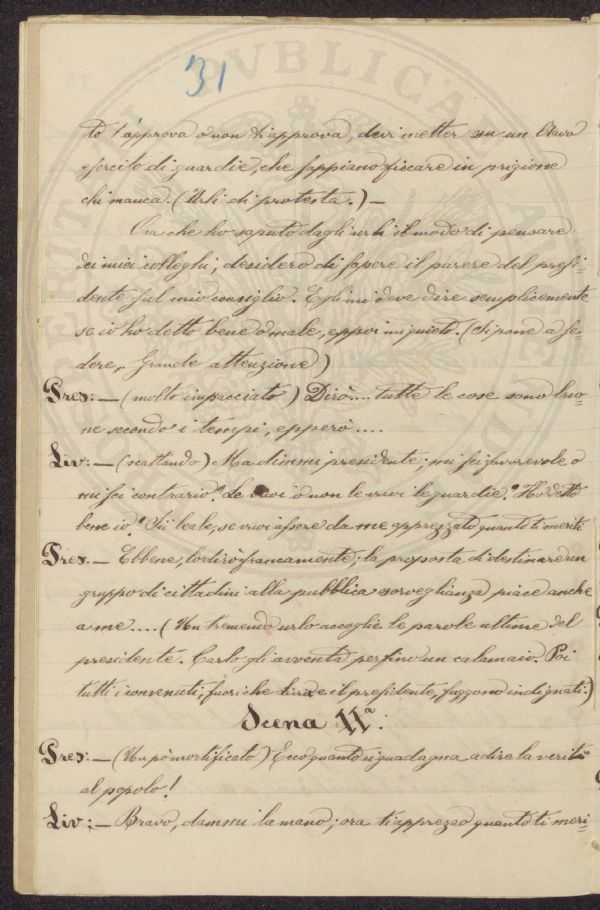 31
to t'approva o non t'approva, devi metter su un bravo
esercito di guardie, che sappiano ficcare in prigione
chi manca. (Urli di protesta.) —
Ora che ho saputo dagli urli il modo di pensare
dei miei colleghi, desidero di sapere il parere del presi-
dente sul mio consiglio. Egli mi deve dire semplicemente
se io ho detto bene o male, eppoi mi quieto. (Si pone a se-
dere, Grande attenzione)
Pres: — (molto impacciato) Dirò.... tutte le cose sono buo-
ne secondo i tempi, epperò ....
Liv: — (scattando) Ma dimmi presidente; mi sei favorevole o
mi sei contrario? Le vuoi o non le vuoi le guardie? Ho detto
bene io? Sii leale, se vuoi essere da me apprezzato quanto ti meriti.
Pres. — Ebbene, lo dirò francamente; la proposta di destinare un
gruppo di cittadini alla pubblica sorveglianza piace anche
a me .... (Un tremendo urlo accoglie le parole ultime del
presidente. Carlo gli avventa perfino un calamaio. Poi
tutti i convenuti, fuori che Livio e il presidente, fuggono indignati.)
Scena IIª.
Pres: — (Un pò mortificato) Ecco quanto si guadagna a dire la verità
al popolo!
Liv: — Bravo, dammi la mano; ora t'apprezzo quanto ti meri-